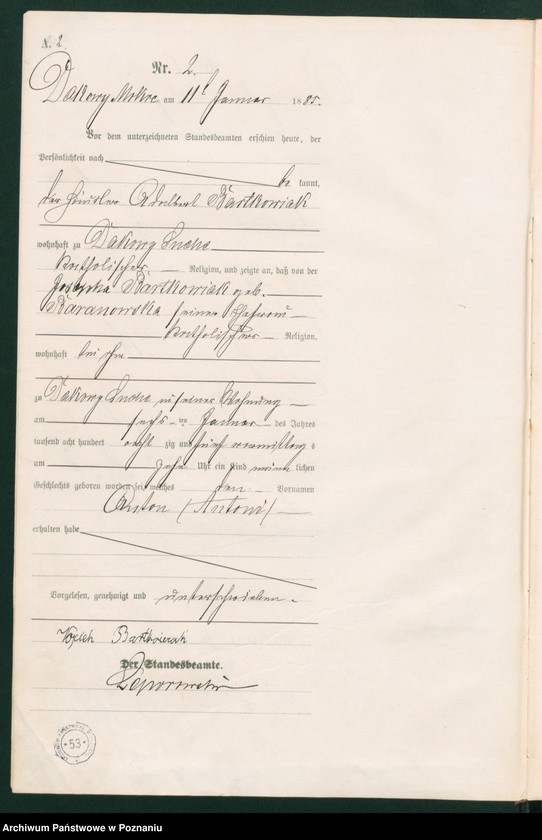 N. 2.
Nr. 2.
Dakowy Mokre am 11t Januar 1885.
Vor dem unterzeichneten Standesbeamten erschien heute, der
Persönlichkeit nach
be kannt,
der Häusler Adalbert Bartkowiak
wohnhaft zu Dakowy Suche
katholischer Religion, und zeigte an, daß von der
Josepha Bartkowiak geb.
Baranowska seiner Ehefrau
katholischer Religion,
wohnhaft bei ihm
zu Dakowy Suche in seiner Wohnung
am sechs ten Januar des Jahres
tausend acht hundert acht zig und fünf vormittags
am zehn Uhr ein Kind männ lichen
Geschlechts geboren worden sei, welches den Vornamen
Anton (Antoni)
erhalten habe
Vorgelesen, genehmigt und unterschrieben.
Bartkowiak
Der Standesbeamte.
53
Archiwum Państwowe w Poznaniu